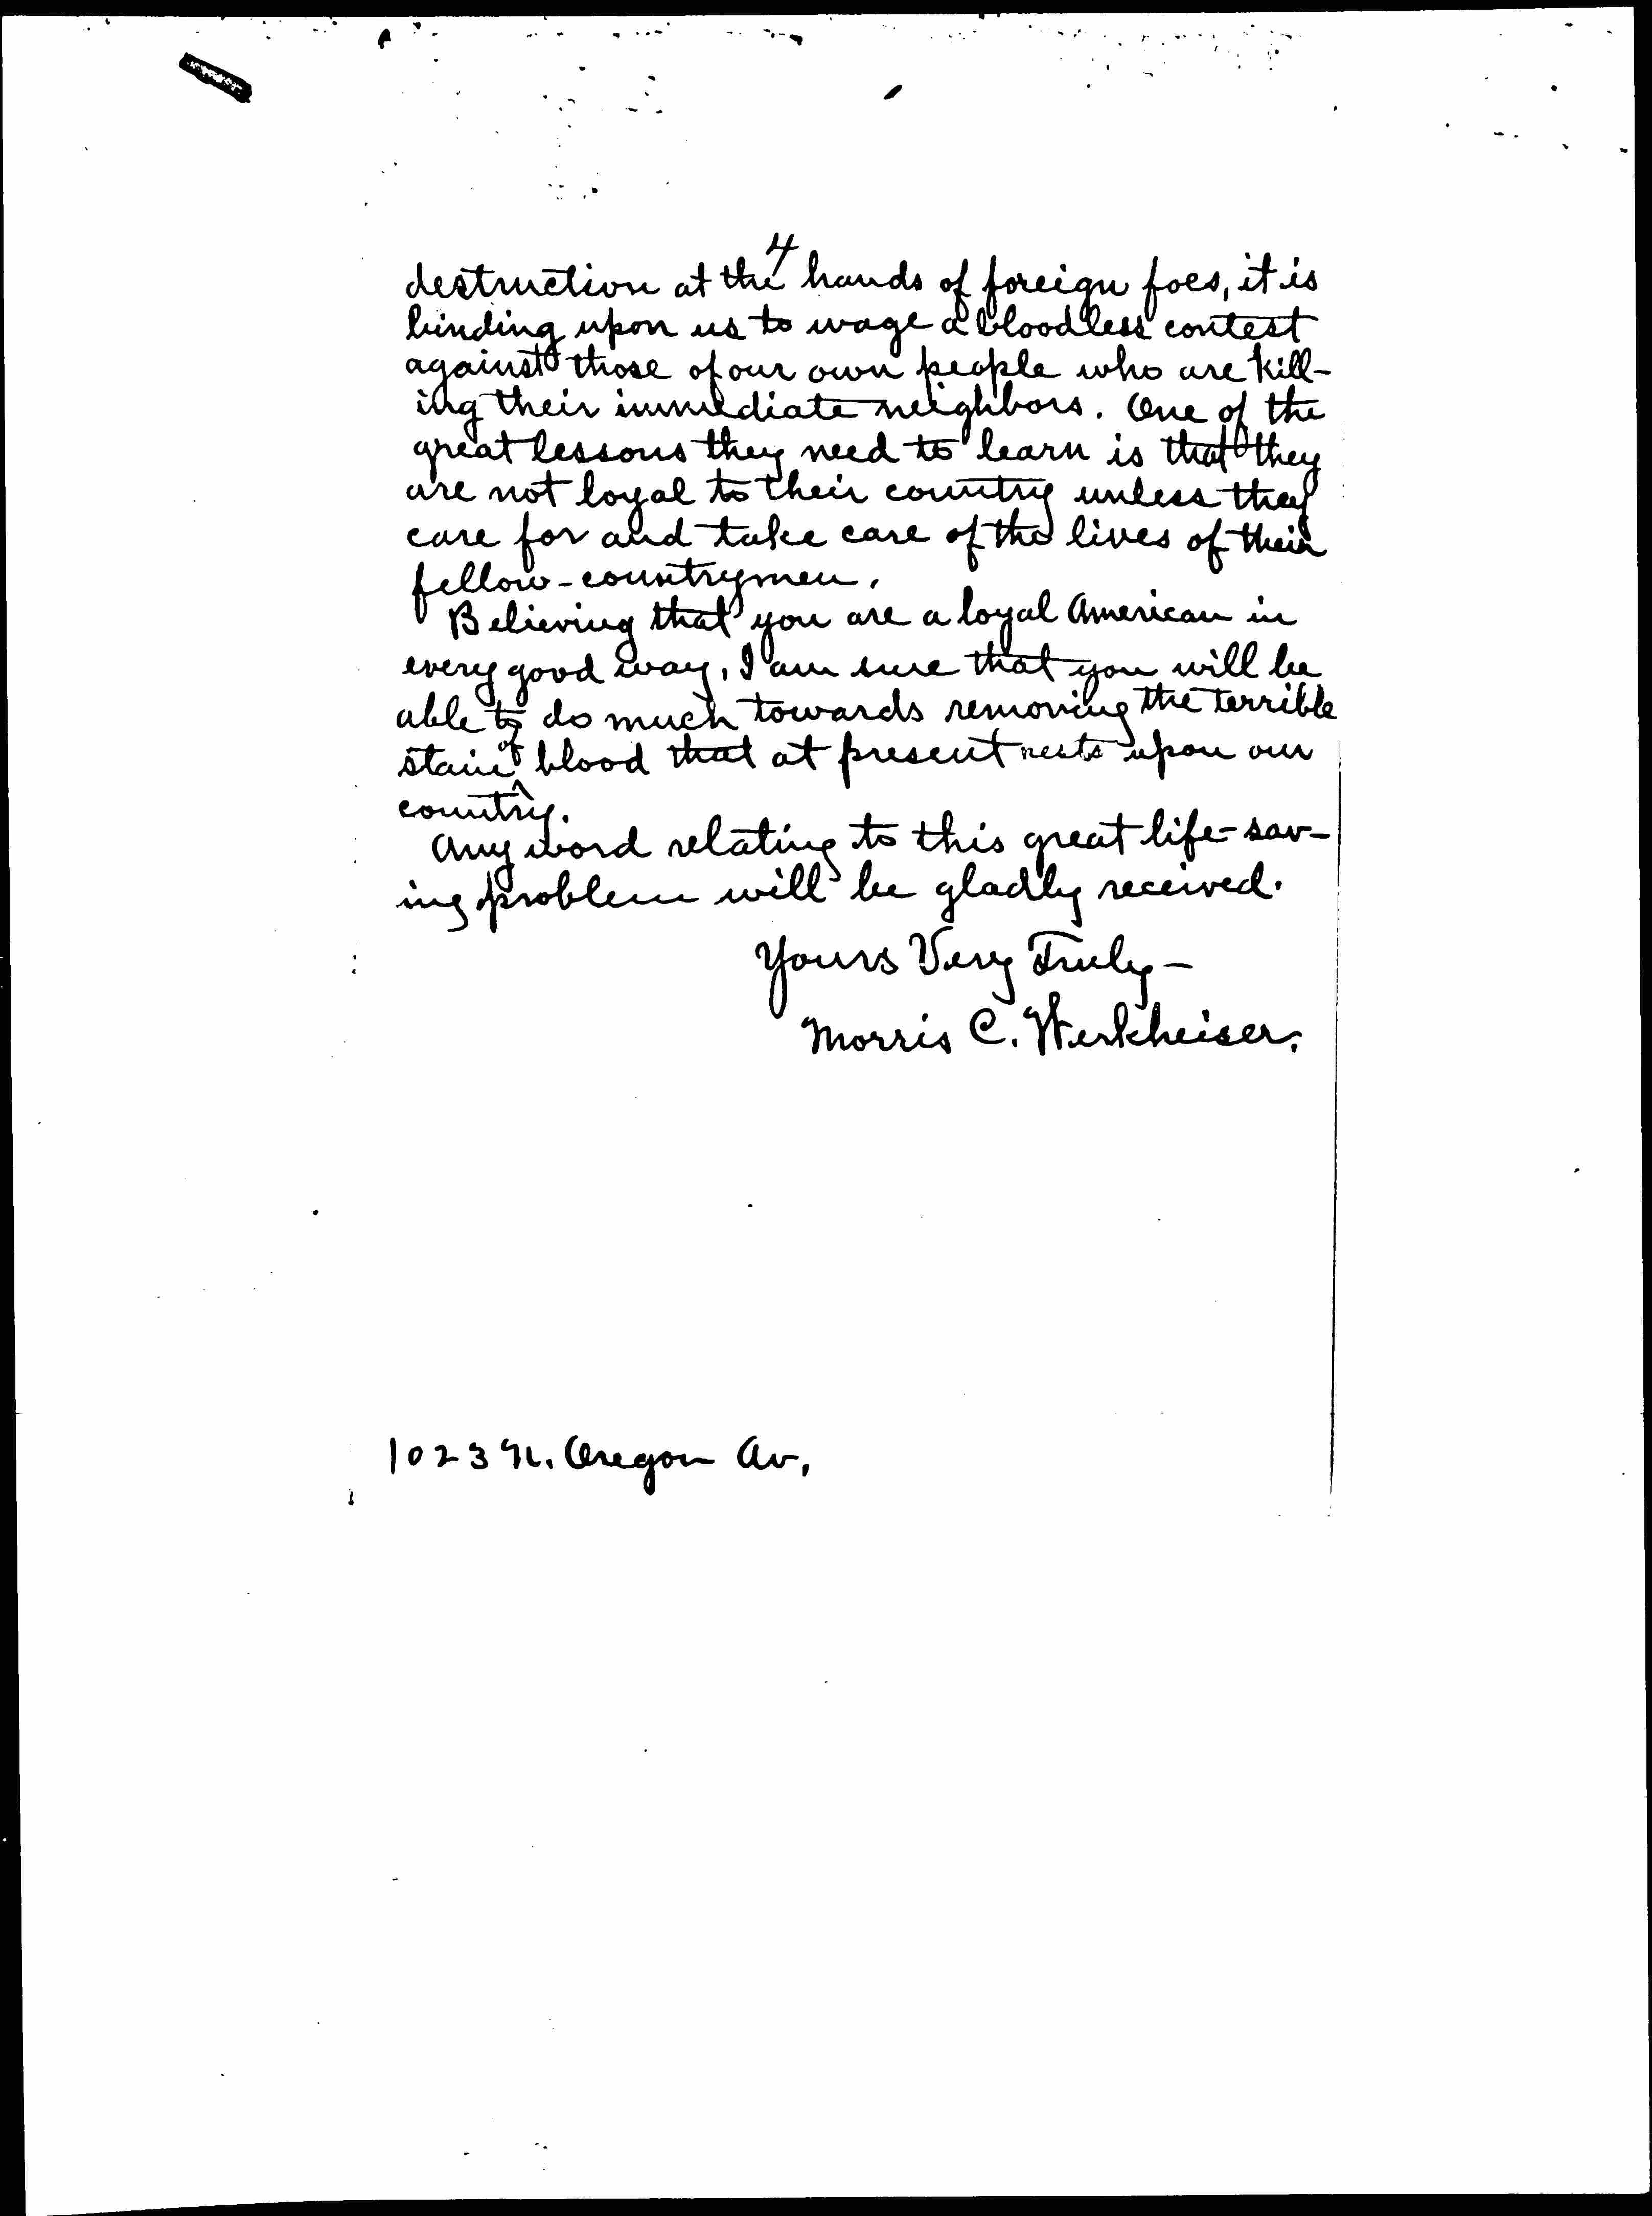 4
destruction at the hands of foreign foes, it is
binding upon us to wage a bloodless contest
against those of our own people who are kill-
ing their immediate neighbors. One of the
great lessons they need to learn is that they
are not loyal to their country unless they
care for and take care of the lives of their
fellow-countrymen.
Believing that you are a loyal American in
every good way, I am sure that you will be
able to do much towards removing the terrible
stain of blood that at present rests upon our
country.
Any word relating to this great life-sav-
ing problem will be gladly received.
Yours Very Truly-
Morris C. Werkheiser.
1023 N. Oregon Av.